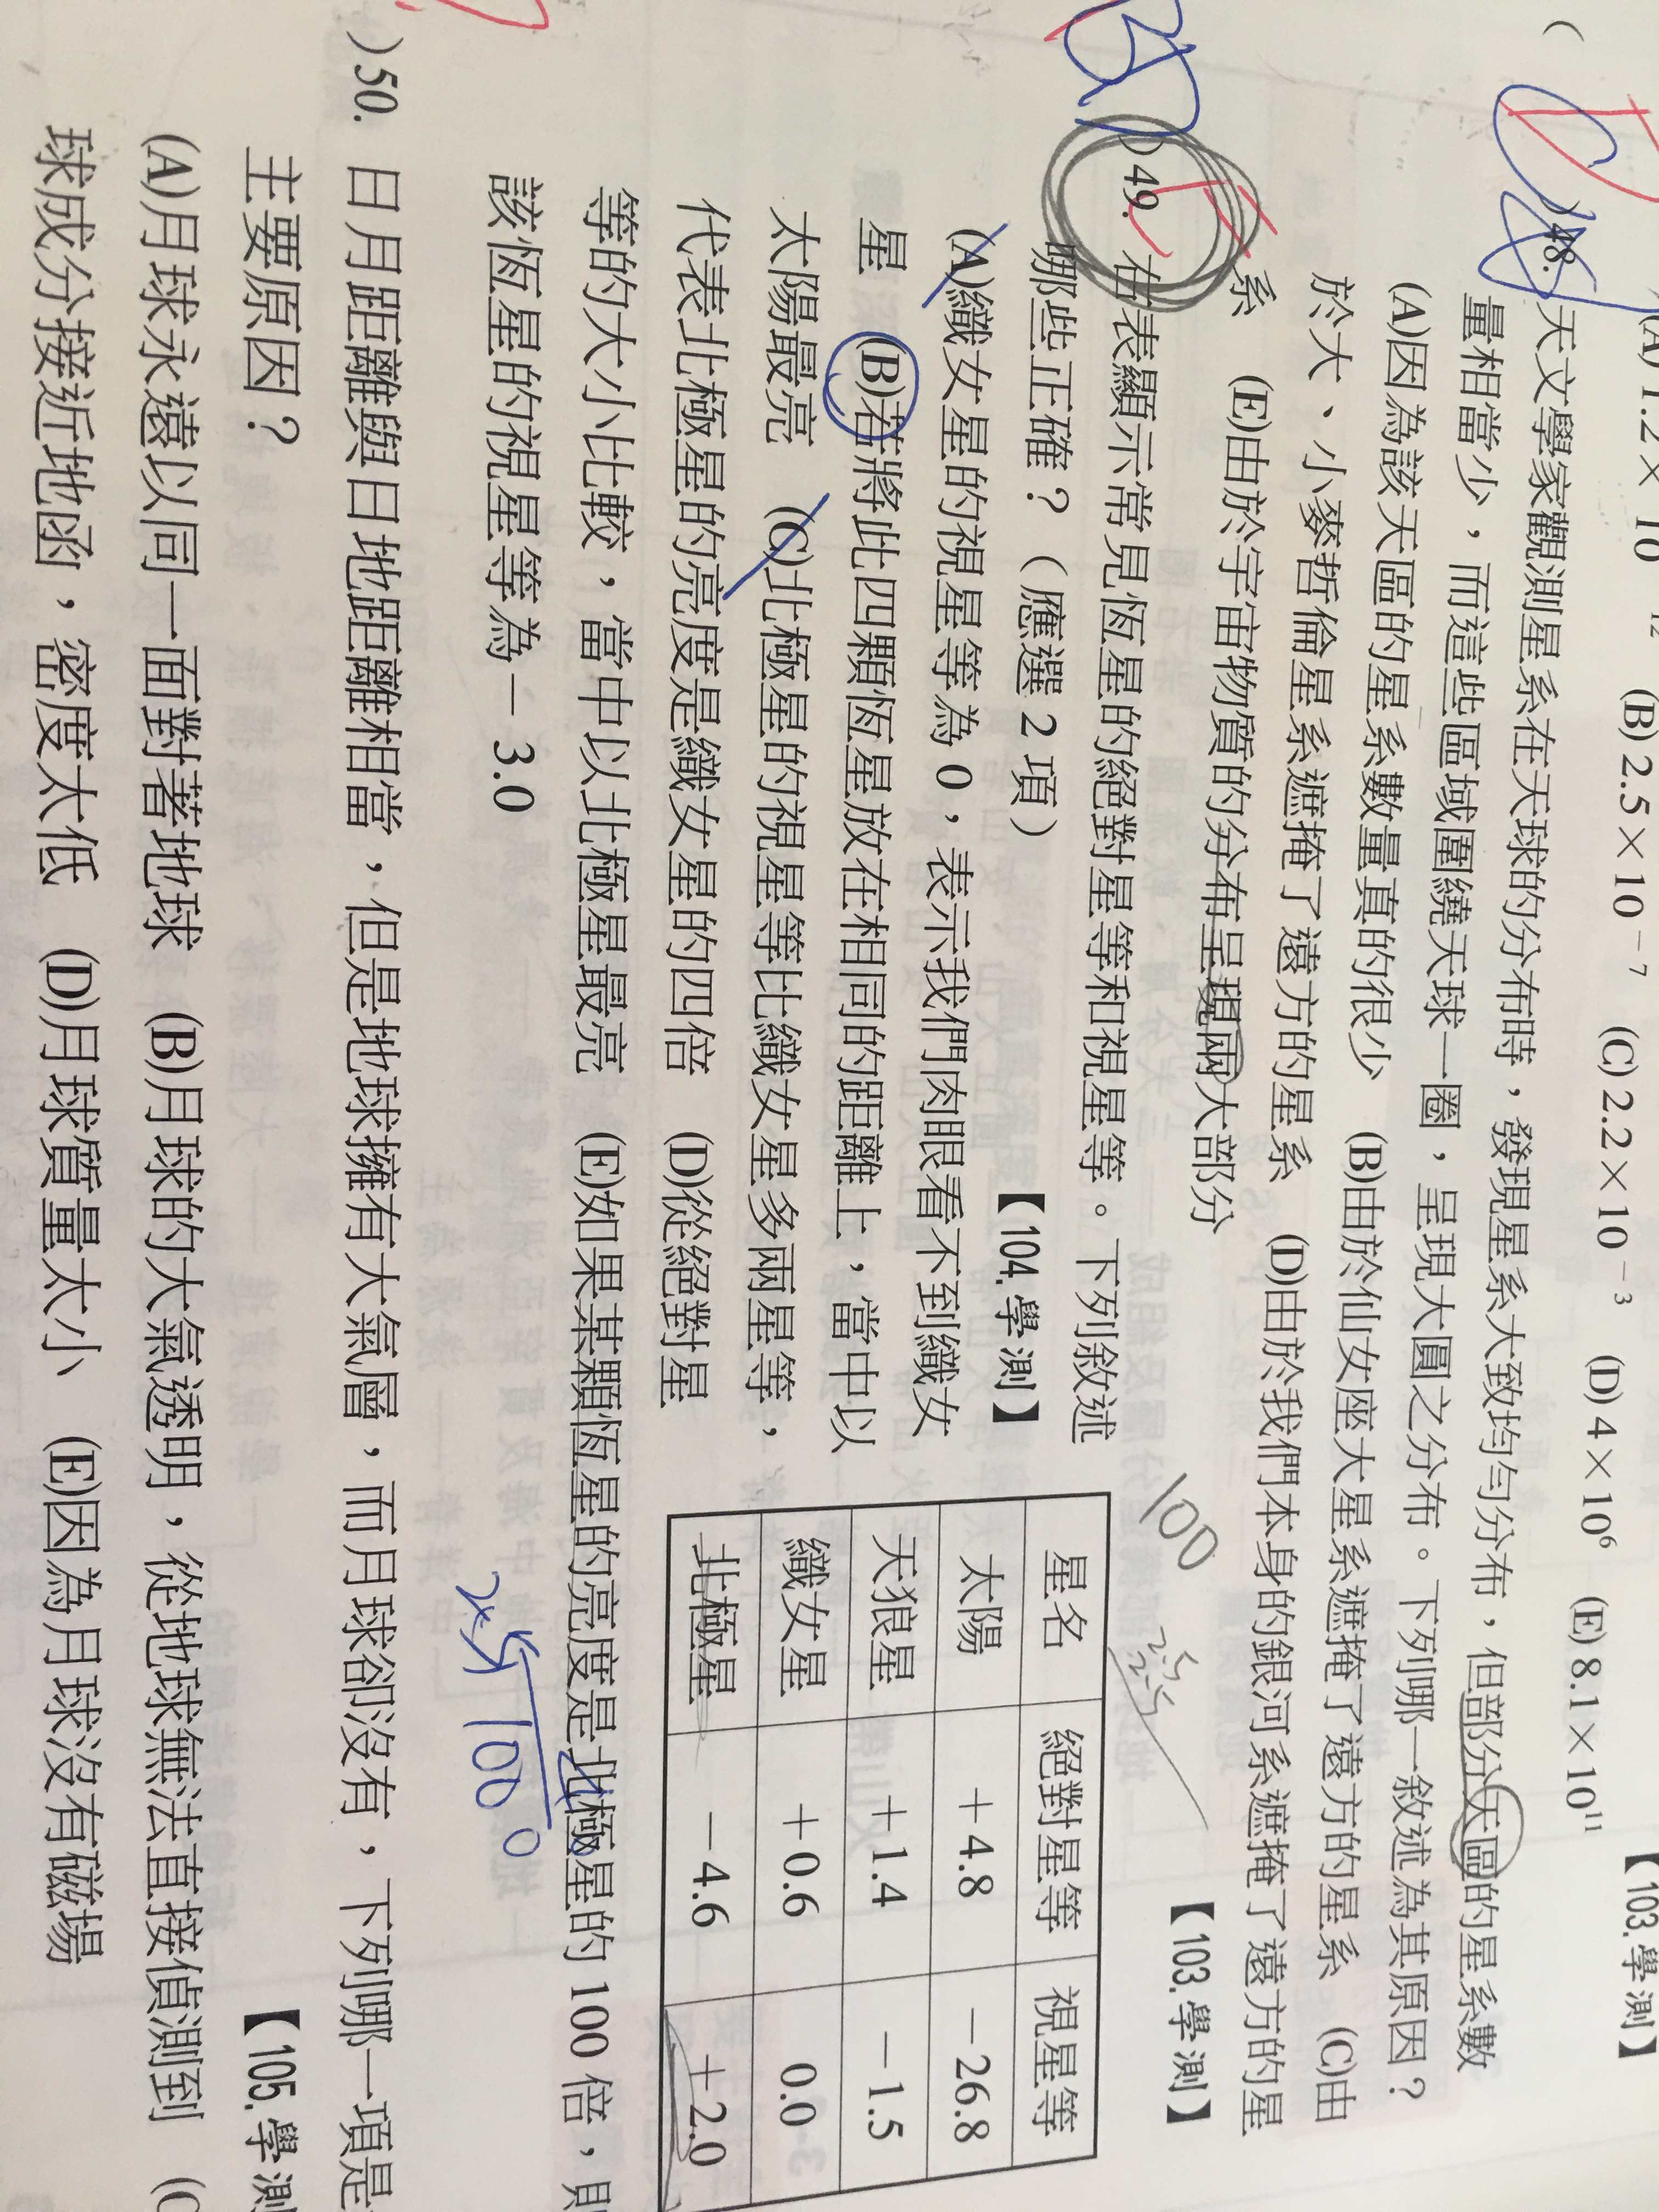 (A) 1.2 × 10⁻¹² (B) 2.5 × 10⁻⁷ (C) 2.2 × 10⁻³ (D) 4 × 10⁶ (E) 8.1 × 10¹¹
【103.學測】
( )48. 天文學家觀測星系在天球的分布時，發現星系大致均勻分布，但部分天區的星系數
量相當少，而這些區域圍繞天球一圈，呈現大圓之分布。下列哪一敘述為其原因？
(A)因為該天區的星系數量真的很少 (B)由於仙女座大星系遮掩了遠方的星系 (C)由
於大、小麥哲倫星系遮掩了遠方的星系 (D)由於我們本身的銀河系遮掩了遠方的星
系 (E)由於宇宙物質的分布呈現兩大部分
【103.學測】
)49. 右表顯示常見恆星的絕對星等和視星等。下列敘述
哪些正確？（應選 2 項）
【104.學測】
(A)織女星的視星等為 0，表示我們肉眼看不到織女
星 (B)若將此四顆恆星放在相同的距離上，當中以
太陽最亮 (C)北極星的視星等比織女星多兩星等，
代表北極星的亮度是織女星的四倍 (D)從絕對星
等的大小比較，當中以北極星最亮 (E)如果某顆恆星的亮度是北極星的 100 倍，則
該恆星的視星等為－3.0
100
2.5
星名 絕對星等 視星等
太陽 ＋4.8 －26.8
天狼星 ＋1.4 －1.5
織女星 ＋0.6 0.0
北極星 －4.6 ＋2.0
100
)50. 日月距離與日地距離相當，但是地球擁有大氣層，而月球卻沒有，下列哪一項是
主要原因？
【105.學測
(A)月球永遠以同一面對著地球 (B)月球的大氣透明，從地球無法直接偵測到 (C
球成分接近地函，密度太低 (D)月球質量太小 (E)因為月球沒有磁場